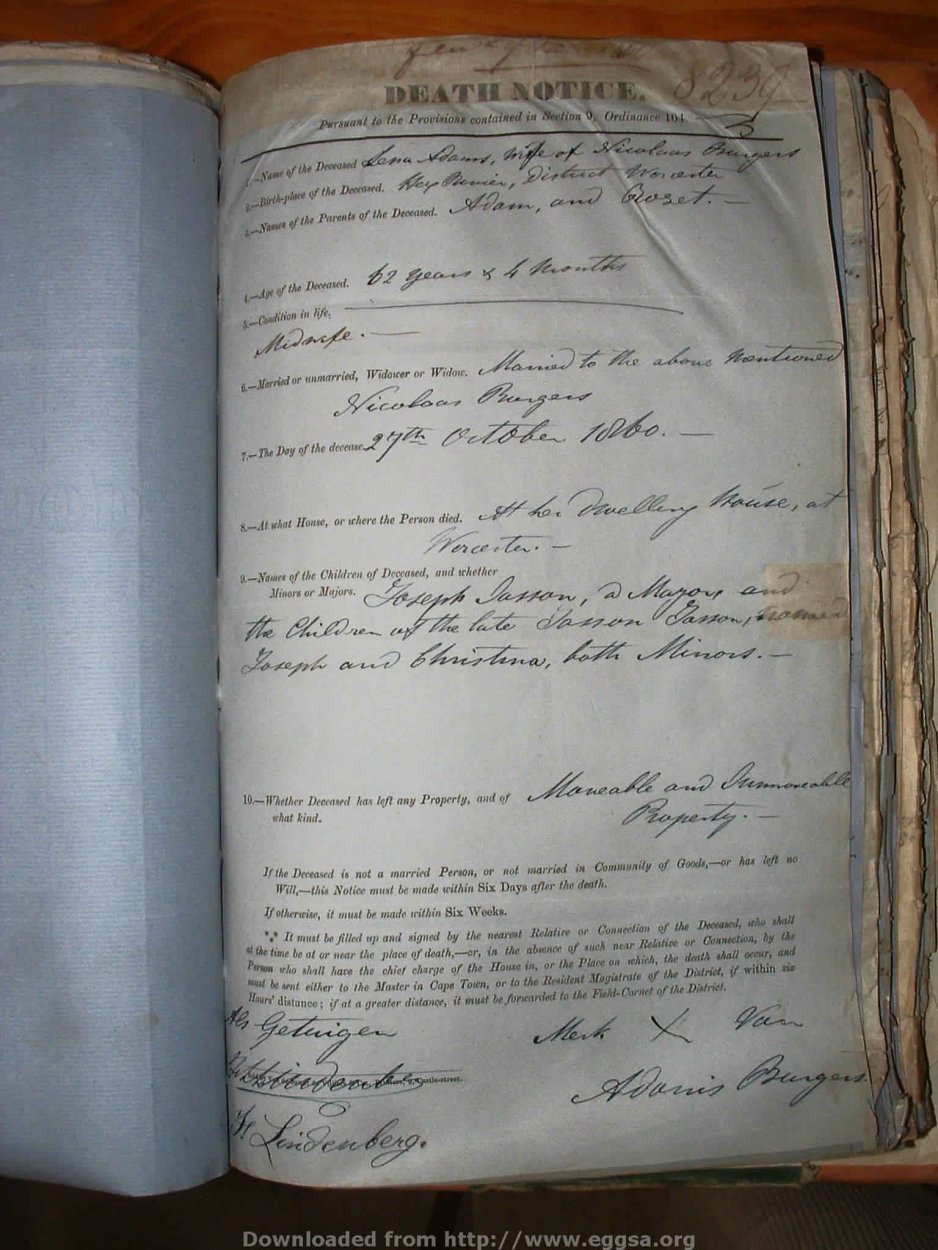 8239
DEATH NOTICE.
Pursuant to the Provisions contained in Section 9, Ordinance 104
1.—Name of the Deceased Lena Adams, wife of Nicolaas Burgers
2.—Birth-place of the Deceased. Hex Rivier, District Worcester
3.—Names of the Parents of the Deceased. Adam, and Rozet.—
4.—Age of the Deceased. 62 years & 4 Months
5.—Condition in life.
Midwife.—
6.—Married or unmarried, Widower or Widow. Married to the above mentioned
Nicolaas Burgers
7.—The Day of the decease. 27th October 1860.—
8.—At what House, or where the Person died. At her dwelling house, at
Worcester.—
9.—Names of the Children of Deceased, and whether
Minors or Majors. Joseph Jasson, a Mayor, and
the Children of the late Jasson Jasson, named
Joseph and Christina, both Minors.—
10.—Whether Deceased has left any Property, and of Moveable and Immoveable
what kind. Property.—
If the Deceased is not a married Person, or not married in Community of Goods,—or has left no
Will,—this Notice must be made within Six Days after the death.
If otherwise, it must be made within Six Weeks.
*** It must be filled up and signed by the nearest Relative or Connection of the Deceased, who shall
at the time be at or near the place of death,—or, in the absence of such near Relative or Connection, by the
Person who shall have the chief charge of the House in, or the Place on which, the death shall occur, and
must be sent either to the Master in Cape Town, or to the Resident Magistrate of the District, if within six
Hours' distance; if at a greater distance, it must be forwarded to the Field-Cornet of the District.
Als Getuigen Merk X Van
Castle-street. Adonis Burgers
H Lindenberg.
Downloaded from http://www.eggsa.org